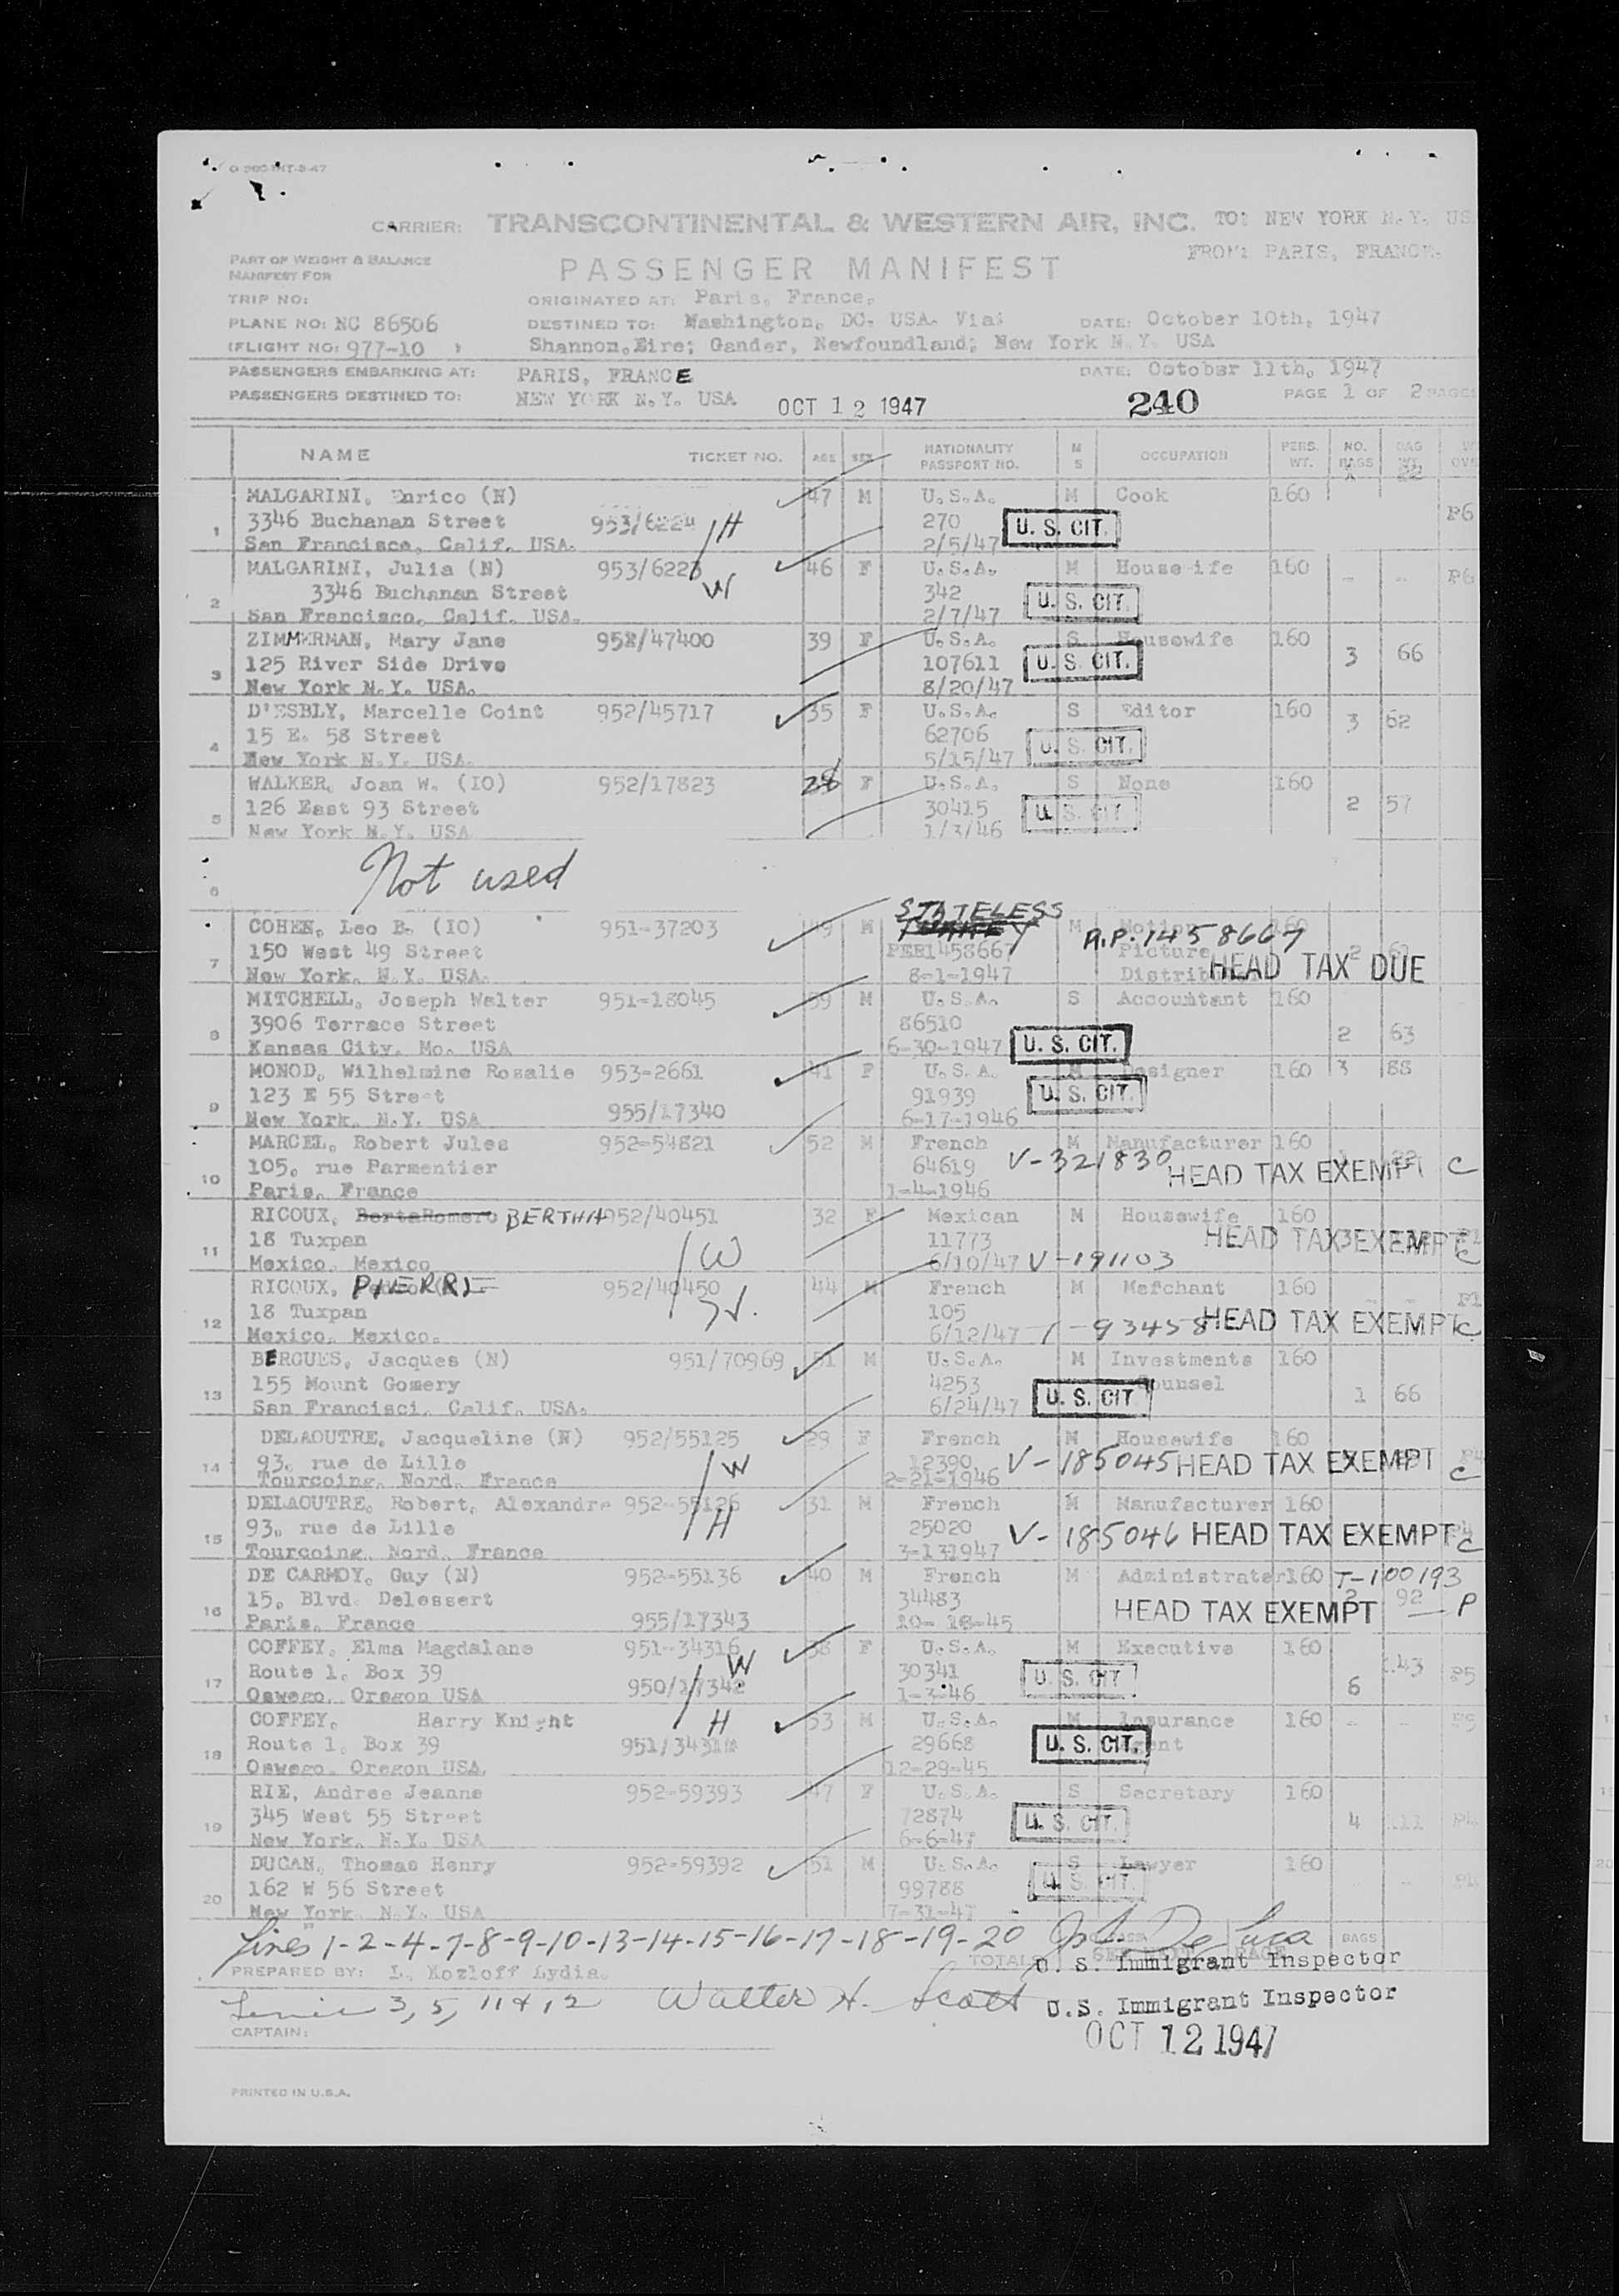 CARRIER: TRANSCONTINENTAL & WESTERN AIR, INC. TO: NEW YORK N.Y. US
FROM: PARIS, FRANCE.
PART OF WEIGHT & BALANCE
MANIFEST FOR
PASSENGER MANIFEST
TRIP NO: ORIGINATED AT: Paris, France,
PLANE NO: NC 86506 DESTINED TO: Washington, DC. USA. Via: DATE: October 10th, 1947
(FLIGHT NO: 977-10 ) Shannon, Eire; Gander, Newfoundland; New York N.Y. USA
PASSENGERS EMBARKING AT: PARIS, FRANCE DATE: October 11th, 1947
PASSENGERS DESTINED TO: NEW YORK N.Y. USA OCT 12 1947 240 PAGE 1 OF 2 PAGES
NAME TICKET NO. AGE SEX NATIONALITY PASSPORT NO. M S OCCUPATION PERS. WT. NO. BAGS BAG WT.
MALGARINI, Enrico (N) 47 M U.S.A. M Cook 160
1 3346 Buchanan Street 953/6224 H 270 U. S. CIT. P6
San Francisco, Calif. USA. 2/5/47
MALGARINI, Julia (N) 953/6223 46 F U.S.A. M House ife 160 - - P6
2 3346 Buchanan Street W 342 U. S. CIT.
San Francisco, Calif. USA. 2/7/47
ZIMMERMAN, Mary Jane 39 F U.S.A. S Housewife 160
3 125 River Side Drive 107611 U. S. CIT. 3 66
New York N.Y. USA. 8/20/47
D'ESBLY, Marcelle Coint 952/45717 35 F U.S.A. S Editor 160 3 62
4 15 E. 58 Street 62706 U. S. CIT.
New York N.Y. USA. 5/15/47
WALKER, Joan W. (IO) 952/17823 28 F U.S.A. S None 160
5 126 East 93 Street 30415 U. S. CIT. 2 57
New York N.Y. USA 1/3/46
6 Not used
STATELESS
COHEN, Leo B. (IO) 951-37203 M M Motion 160 R.P. 1458667
7 150 West 49 Street Picture 2
New York, N.Y. USA. 8-1-1947 HEAD TAX DUE
MITCHELL, Joseph Walter 951-18045 39 M U.S.A. S Accountant 160
8 3906 Terrace Street 86510 2 63
Kansas City, Mo. USA 6-30-1947 U. S. CIT.
MONOD, Wilhelmine Rosalie 953-2661 41 F U.S.A. M Designer 160 3 88
9 123 E 55 Street 955/17340 91939 U. S. CIT.
New York, N.Y. USA 6-17-1946
MARCEL, Robert Jules 952-54821 52 M French M Manufacturer 160
10 105, rue Parmentier 64619 V-321830 HEAD TAX EXEMPT C
Paris, France 1-4-1946
RICOUX, BertaRomero BERTHA 952/40451 32 F Mexican M Housewife 160
11 18 Tuxpan W 11773 HEAD TAX EXEMPT C
Mexico, Mexico 6/10/47 V-191103
RICOUX, PIERRE 952/40450 44 M French M Merchant 160
12 18 Tuxpan 105 P1
Mexico, Mexico. 6/12/47 -93458 HEAD TAX EXEMPT C
BERGUES, Jacques (N) 951/70969 51 M U.S.A. M Investments 160
13 155 Mount Gomery 4253 Counsel 1 66
San Francisci, Calif. USA. 6/24/47 U. S. CIT
DELAOUTRE, Jacqueline (N) 952/55125 29 F French M Housewife 160
14 93, rue de Lille W 12390 V-185045 HEAD TAX EXEMPT C
Tourcoing, Nord, France 2-21-1946
DELAOUTRE, Robert, Alexandre 952-55126 31 M French M Manufacturer 160
15 93, rue de Lille H 25020 V-185046 HEAD TAX EXEMPT C
Tourcoing, Nord, France 3-131947
DE CARMOY, Guy (N) 952-55136 40 M French M Administrater 160 T-100193
16 15, Blvd. Delessert 34483 2 92
Paris, France 955/17343 10-16-45 HEAD TAX EXEMPT P
COFFEY, Elma Magdalane 951-34316 38 F U.S.A. M Executive 160
17 Route 1, Box 39 W 30341 U. S. CIT 6 P5
Oswego, Oregon USA 950/17342 1-3-46
COFFEY, Harry Knight H 53 M U.S.A. M Insurance 160 - - P5
18 Route 1, Box 39 29668 U. S. CIT. Agent
Oswego, Oregon USA. 12-29-45
RIE, Andree Jeanne 952-59393 47 F U.S.A. S Secretary 160
19 345 West 55 Street 72874 U. S. CIT. 4
New York, N.Y. USA 6-6-47
DUGAN, Thomas Henry 952-59392 51 M U.S.A. S Lawyer 160
20 162 W 56 Street 99788 U. S. CIT.
New York, N.Y. USA 7-31-47
Lines 1-2-4-7-8-9-10-13-14-15-16-17-18-19-20 De Luca BAGS
PREPARED BY: L. Kozloff Lydia. TOTALS U. S. Immigrant Inspector
3, 5, 11 & 12 Walter H. Scott U.S. Immigrant Inspector
CAPTAIN: OCT 12 1947
PRINTED IN U.S.A.